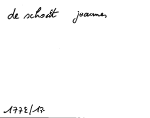 de schodt joannes
1772/17